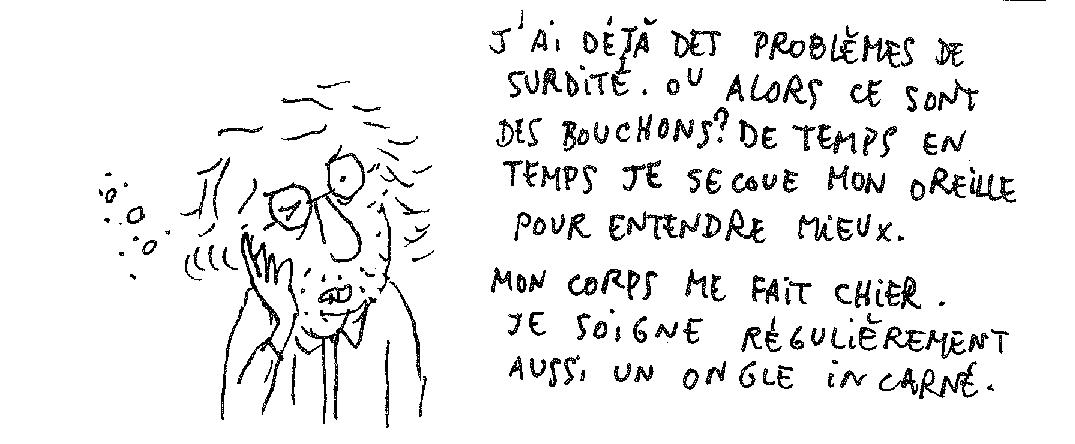 J'AI DÉJÀ DET PROBLÈMES DE
SURDITÉ. OU ALORS CE SONT
DES BOUCHONS? DE TEMPS EN
TEMPS JE SECOUE MON OREILLE
POUR ENTENDRE MIEUX.
MON CORPS ME FAIT CHIER.
JE SOIGNE RÉGULIÈREMENT
AUSSI UN ONGLE INCARNÉ.